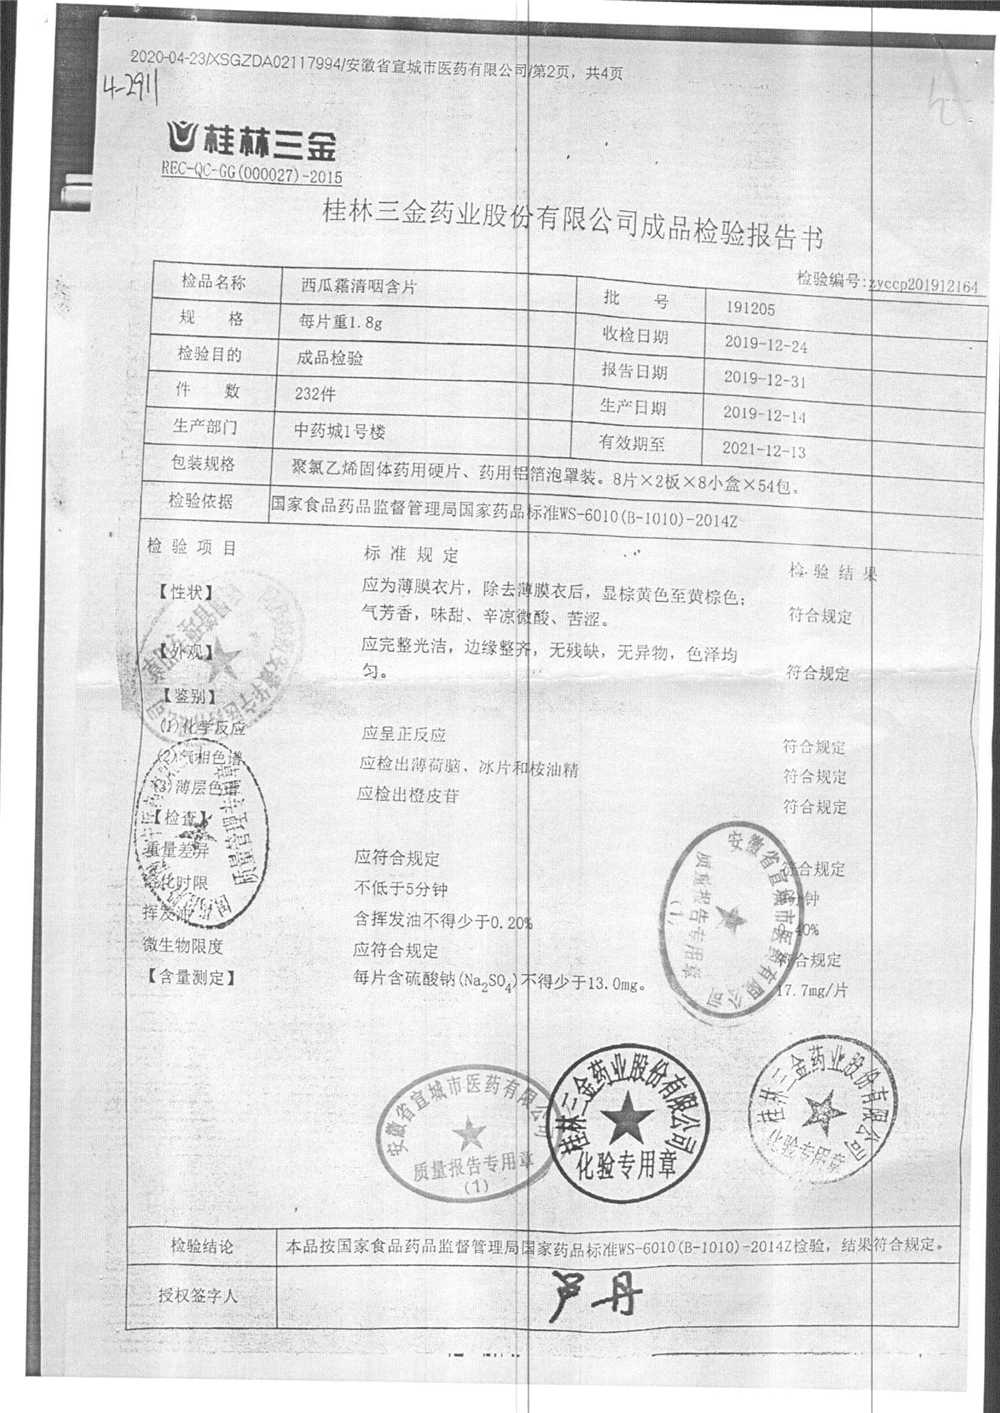 2020-04-23/XSGZDA02117994/安徽省宣城市医药有限公司/第2页，共4页
4-2911
桂林三金
REC-QC-GG(000027)-2015
桂林三金药业股份有限公司成品检验报告书
检验编号:zyccp201912164
检品名称 西瓜霜清咽含片 批 号 191205
规 格 每片重1.8g 收检日期 2019-12-24
检验目的 成品检验 报告日期 2019-12-31
件 数 232件 生产日期 2019-12-14
生产部门 中药城1号楼 有效期至 2021-12-13
包装规格 聚氯乙烯固体药用硬片、药用铝箔泡罩装。8片×2板×8小盒×54包。
检验依据 国家食品药品监督管理局国家药品标准WS-6010(B-1010)-2014Z
检 验 项 目 标 准 规 定 检 验 结 果
【性状】 应为薄膜衣片，除去薄膜衣后，显棕黄色至黄棕色；
气芳香，味甜、辛凉微酸、苦涩。 符合规定
【外观】 应完整光洁，边缘整齐，无残缺，无异物，色泽均
匀。 符合规定
【鉴别】
(1)化学反应 应呈正反应 符合规定
(2)气相色谱 应检出薄荷脑、冰片和桉油精 符合规定
(3)薄层色 应检出橙皮苷 符合规定
【检查】
重量差异 应符合规定 符合规定
化时限 不低于5分钟 分钟
挥发 含挥发油不得少于0.20% 40%
微生物限度 应符合规定 符合规定
【含量测定】 每片含硫酸钠(Na₂SO₄)不得少于13.0mg。 17.7mg/片
安徽省宣城市医药有限公司
质量报告专用章
(1)
安徽省宣城市医药有限公司
质量报告专用章
(1)
桂林三金药业股份有限公司
化验专用章
桂林三金药业股份有限公司
化验专用章
检验结论 本品按国家食品药品监督管理局国家药品标准WS-6010(B-1010)-2014Z检验，结果符合规定。
授权签字人 芦丹